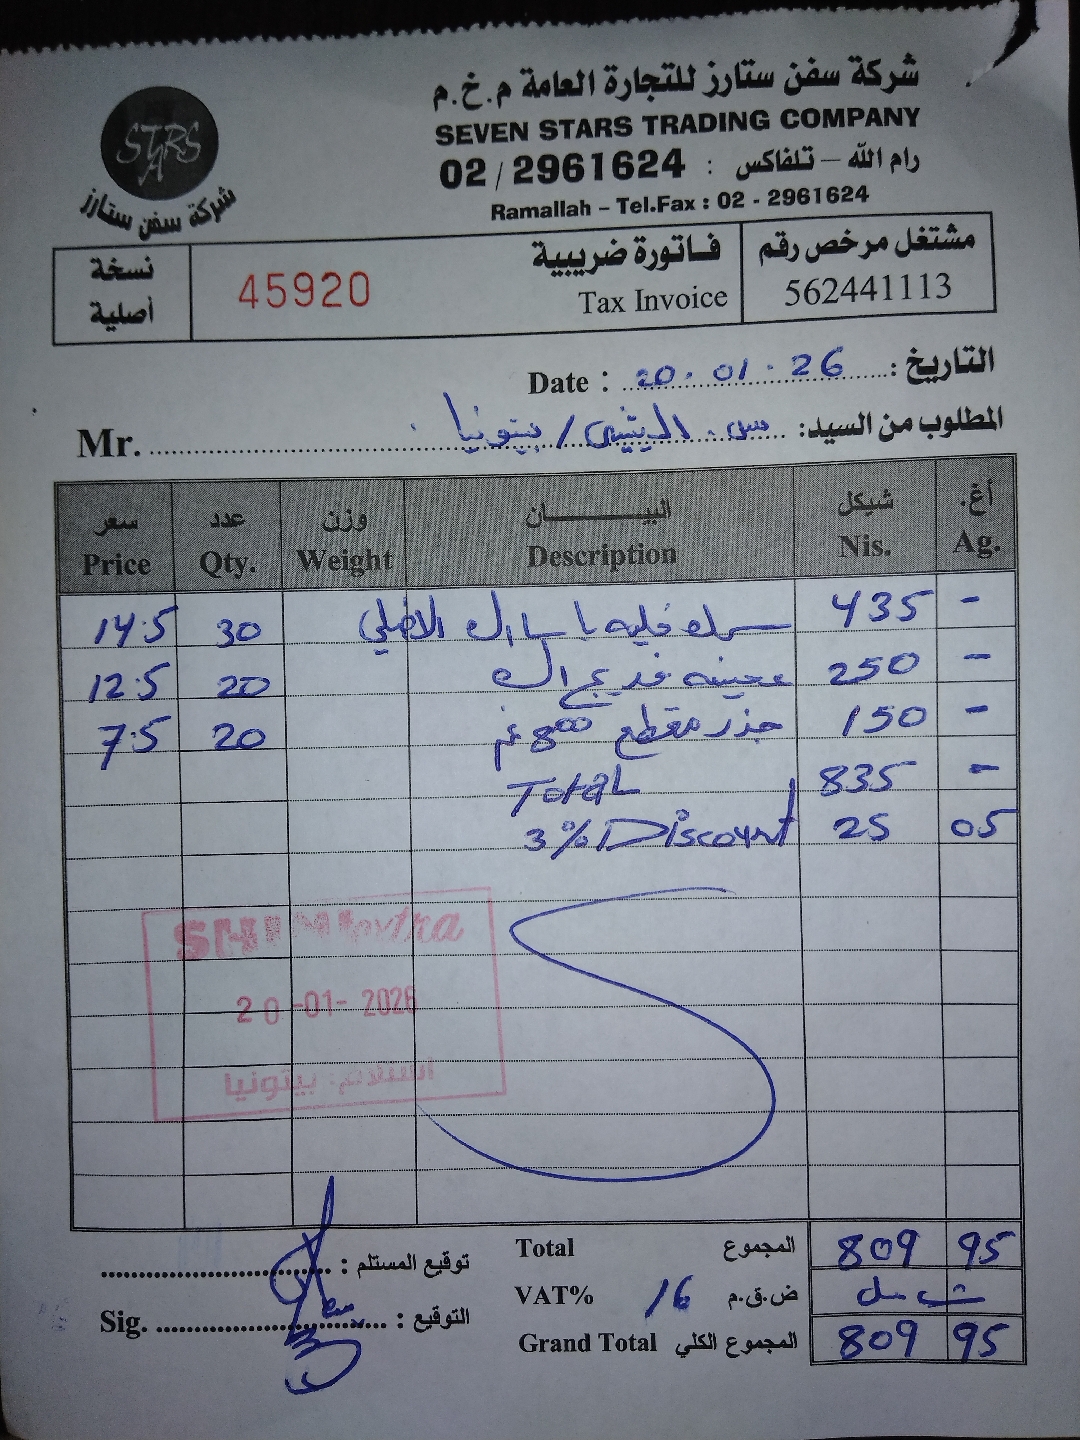 شركة سفن ستارز للتجارة العامة م.خ.م
SEVEN STARS TRADING COMPANY
رام الله - تلفاكس : 02/2961624
Ramallah - Tel.Fax : 02 - 2961624
STARS
شركة سفن ستارز
مشتغل مرخص رقم
562441113
فاتورة ضريبية
Tax Invoice
45920
نسخة أصلية
التاريخ : 20.01.26 Date :
المطلوب من السيد: س. / بيتونيا Mr.
أغ. شيكل البيـــان وزن عدد سعر
Ag. Nis. Description Weight Qty. Price
- 435 30 14.5
- 250 عجينه 20 12.5
- 150 جذر مقطع 800 غم 20 7.5
- 835 Total
05 25 3% Discount
20-01-2026
استلام: بيتونيا
Total المجموع 809 95
VAT% 16 ض.ق.م شامل
Grand Total المجموع الكلي 809 95
توقيع المستلم :
Sig. التوقيع :